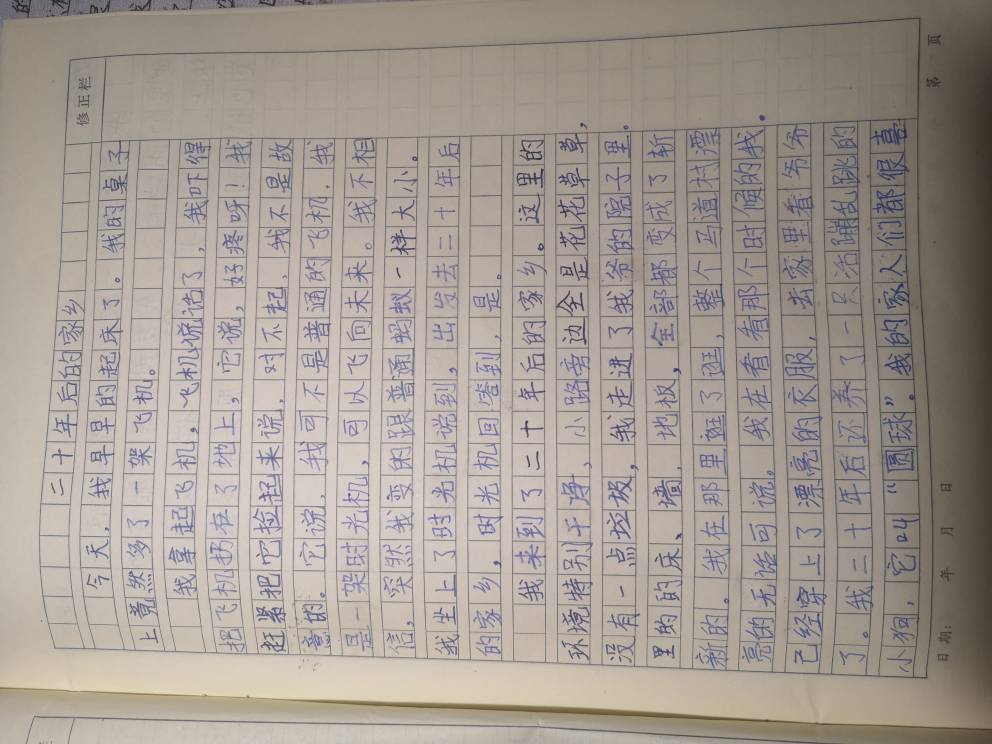 修正栏
二十年后的家乡
今天，我早早的起床了。我的桌子
上竟然多了一架飞机。
我拿起飞机，飞机说话了，我吓得
把飞机扔在了地上，它说，好疼呀！我
赶紧把它捡起来说，对不起，我不是故
意的。它说，我可不是普通的飞机，我
是一架时光机，可以飞向未来。我不相
信，突然我变的跟普通蚂蚁一样大小。
我坐上了时光机说到，出发去二十年后
的家乡，时光机回答到，是。
我来到了二十年后的家乡。这里的
环境特别干净，小路旁边全是花花草草，
没有一点垃圾，我走进了我爷的院子里。
里的的床、墙、地板，全部都变成了新
新的。我在那里逛了逛，整个马道村漂
亮的无话可说。我在看看那个时候的我。
已经穿上了漂亮的衣服，去家里看爷爷
了。我二十年后还养了一只活蹦乱跳的
小狗，它叫“圆球”。我的家人们都很喜
日期： 年 月 日
第 页